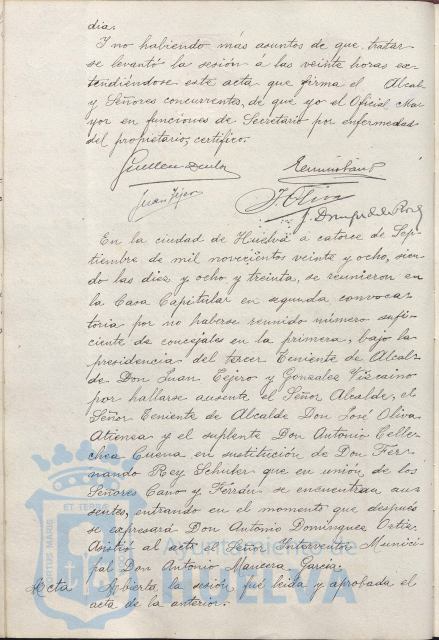 dia.
Y no habiendo más asuntos de que tratar
se levantó la sesión á las veinte horas ex-
tendiéndose este acta que firma el Alcal
y Señores concurrentes, de que yo el Oficial Ma
yor en funciones de Secretario por enfermedad
del propietario, certifico.
Juan Tejero
J. Oliva
En la ciudad de Huelva á catorce de Sep-
tiembre de mil novecientos veinte y ocho, sien-
do las diez y ocho y treinta, se reunieron en
la Casa Capitular en segunda convoca-
toria por no haberse reunido número sufi-
ciente de concejales en la primera, bajo la
presidencia del tercer Teniente de Alcal-
de Don Juan Tejero y Gonzalez Vizcaino
por hallarse ausente el Señor Alcalde, el
Señor Teniente de Alcalde Don José Oliva
Atienza y el suplente Don Antonio
Cuena en sustitución de Don Fer-
nando Rey Schuter que en unión de los
Señores Cano y Ferrán se encuentran au-
sentes, entrando en el momento que después
se expresará Don Antonio Dominguez Ortiz.
Asistió al acto el Señor Interventor Munici-
pal Don Antonio Mancera Garcia.
Acta Abierta la sesión fué leida y aprobada el
acta de la anterior.
Ayuntamiento de
HUELVA